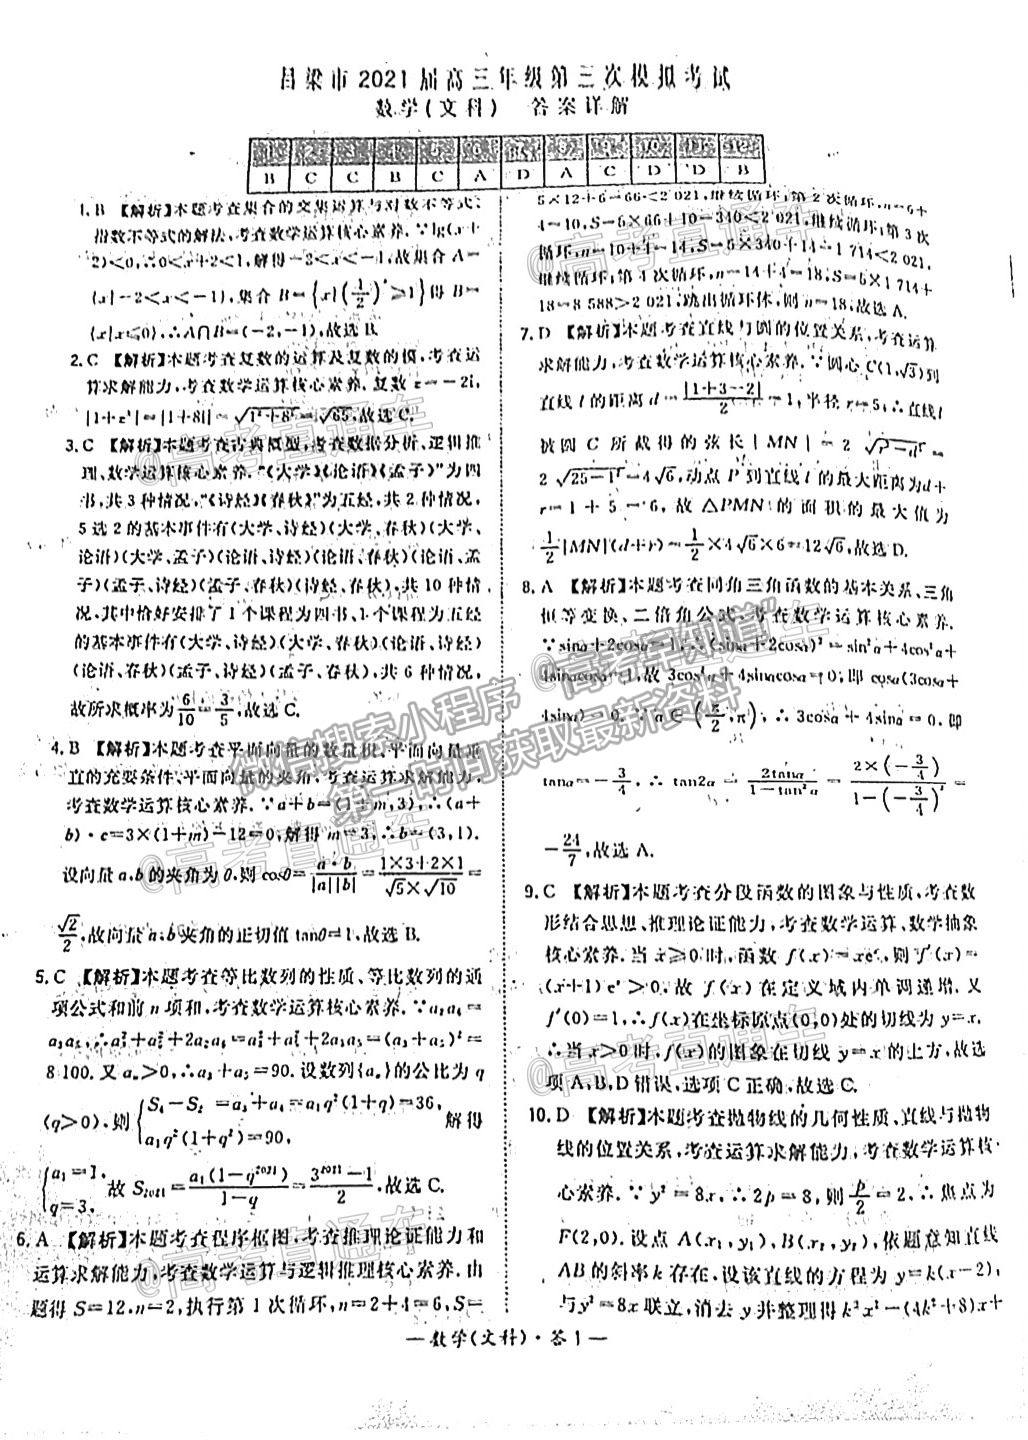 吕梁市 2021 届高三年级第三次模拟考试
数学(文科) 答案详解
1 2 3 4 5 6 7 8 9 10 11 12
B C C B C A D A C D D B
1. B 【解析】本题考查集合的交集运算与对数不等式、
指数不等式的解法,考查数学运算核心素养.∵lg(x+
2)<0,∴0<x+2<1,解得-2<x<-1,故集合 A=
{x|-2<x<-1},集合 B={x|(1/2)^x≥1}得 B=
{x|x≤0},∴A∩B=(-2,-1),故选 B.
2. C 【解析】本题考查复数的运算及复数的模,考查运
算求解能力,考查数学运算核心素养.复数 z=-2i,
|1+z³|=|1+8i|=√(1²+8²)=√65,故选 C.
3. C 【解析】本题考查古典概型,考查数据分析、逻辑推
理、数学运算核心素养.“(大学)(论语)(孟子)”为四
书,共 3 种情况,“(诗经)(春秋)”为五经,共 2 种情况,
5 选 2 的基本事件有(大学、诗经)(大学、春秋)(大学、
论语)(大学、孟子)(论语、诗经)(论语、春秋)(论语、孟
子)(孟子、诗经)(孟子、春秋)(诗经、春秋),共 10 种情
况,其中恰好安排了 1 个课程为四书、1 个课程为五经
的基本事件有(大学、诗经)(大学、春秋)(论语、诗经)
(论语、春秋)(孟子、诗经)(孟子、春秋),共 6 种情况,
故所求概率为6/10=3/5,故选 C.
4. B 【解析】本题考查平面向量的数量积、平面向量垂
直的充要条件、平面向量的夹角,考查运算求解能力,
考查数学运算核心素养.∵a+b=(1+m,3),∴(a+
b)·c=3×(1+m)-12=0,解得 m=3,∴b=(3,1).
设向量 a,b 的夹角为 θ,则 cosθ=a·b/|a||b|=(1×3+2×1)/(√5×√10)=
√2/2,故向量 a,b 夹角的正切值 tanθ=1,故选 B.
5. C 【解析】本题考查等比数列的性质、等比数列的通
项公式和前 n 项和,考查数学运算核心素养.∵a₂a₆=
a₃a₅,∴a₃²+a₅²+2a₂a₆=a₃²+a₅²+2a₃a₅=(a₃+a₅)²=
8 100.又 aₙ>0,∴a₃+a₅=90.设数列{aₙ}的公比为 q
(q>0),则{S₄-S₂=a₃+a₄=a₁q²(1+q)=36, a₁q²(1+q²)=90, 解得
{a₁=1, q=3. 故 S₂₀₂₁=a₁(1-q²⁰²¹)/(1-q)=(3²⁰²¹-1)/2.故选 C.
6. A 【解析】本题考查程序框图,考查推理论证能力和
运算求解能力,考查数学运算与逻辑推理核心素养.由
题得 S=12,n=2,执行第 1 次循环,n=2+4=6,S=
5×12+6=66<2 021,继续循环,第 2 次循环,n=6+
4=10,S=5×66+10=340<2 021,继续循环,第 3 次
循环,n=10+4=14,S=5×340+14=1 714<2 021,
继续循环,第 4 次循环,n=14+4=18,S=5×1 714+
18=8 588>2 021,跳出循环体,则 n=18,故选 A.
7. D 【解析】本题考查直线与圆的位置关系,考查运算
求解能力,考查数学运算核心素养.∵圆心 C(1,√3)到
直线 l 的距离 d=|1+3-2|/2=1,半径 r=5,∴直线 l
被圆 C 所截得的弦长|MN|=2√(r²-d²)=
2√(25-1)=4√6,动点 P 到直线 l 的最大距离为d+
r=1+5=6,故 △PMN 的面积的最大值为
1/2|MN|(d+r)=1/2×4√6×6=12√6,故选 D.
8. A 【解析】本题考查同角三角函数的基本关系、三角
恒等变换、二倍角公式,考查数学运算核心素养.
∵sinα+2cosα=1,∴(sinα+2cosα)²=sin²α+4cos²α+
4sinαcosα=1,故 3cos²α+4sinαcosα=0,即 cosα(3cosα+
4sinα)=0.∵α∈(π/2,π),∴3cosα+4sinα=0,即
tanα=-3/4,∴tan2α=2tanα/(1-tan²α)=2×(-3/4)/(1-(-3/4)²)=
-24/7,故选 A.
9. C 【解析】本题考查分段函数的图象与性质,考查数
形结合思想、推理论证能力,考查数学运算、数学抽象
核心素养.当 x≥0 时,函数 f(x)=xeˣ,则 f′(x)=
(x+1)eˣ>0.故 f(x)在定义域内单调递增.又
f′(0)=1,∴f(x)在坐标原点(0,0)处的切线为 y=x,
∴当 x>0 时,f(x)的图象在切线 y=x 的上方,故选
项 A、B、D 错误,选项 C 正确,故选 C.
10. D 【解析】本题考查抛物线的几何性质、直线与抛物
线的位置关系,考查运算求解能力,考查数学运算核
心素养.∵y²=8x,∴2p=8,则p/2=2,∴焦点为
F(2,0).设点 A(x₁,y₁),B(x₂,y₂),依题意知直线
AB 的斜率 k 存在,设该直线的方程为 y=k(x-2),
与 y²=8x 联立,消去 y 并整理得 k²x²-(4k²+8)x+
— 数学(文科)·答 1 —
@高考直通车
@高考直通车
@高考直通车
@高考直通车
@高考直通车
@高考直通车
微信搜索小程序“高考早知道”
第一时间获取最新资料